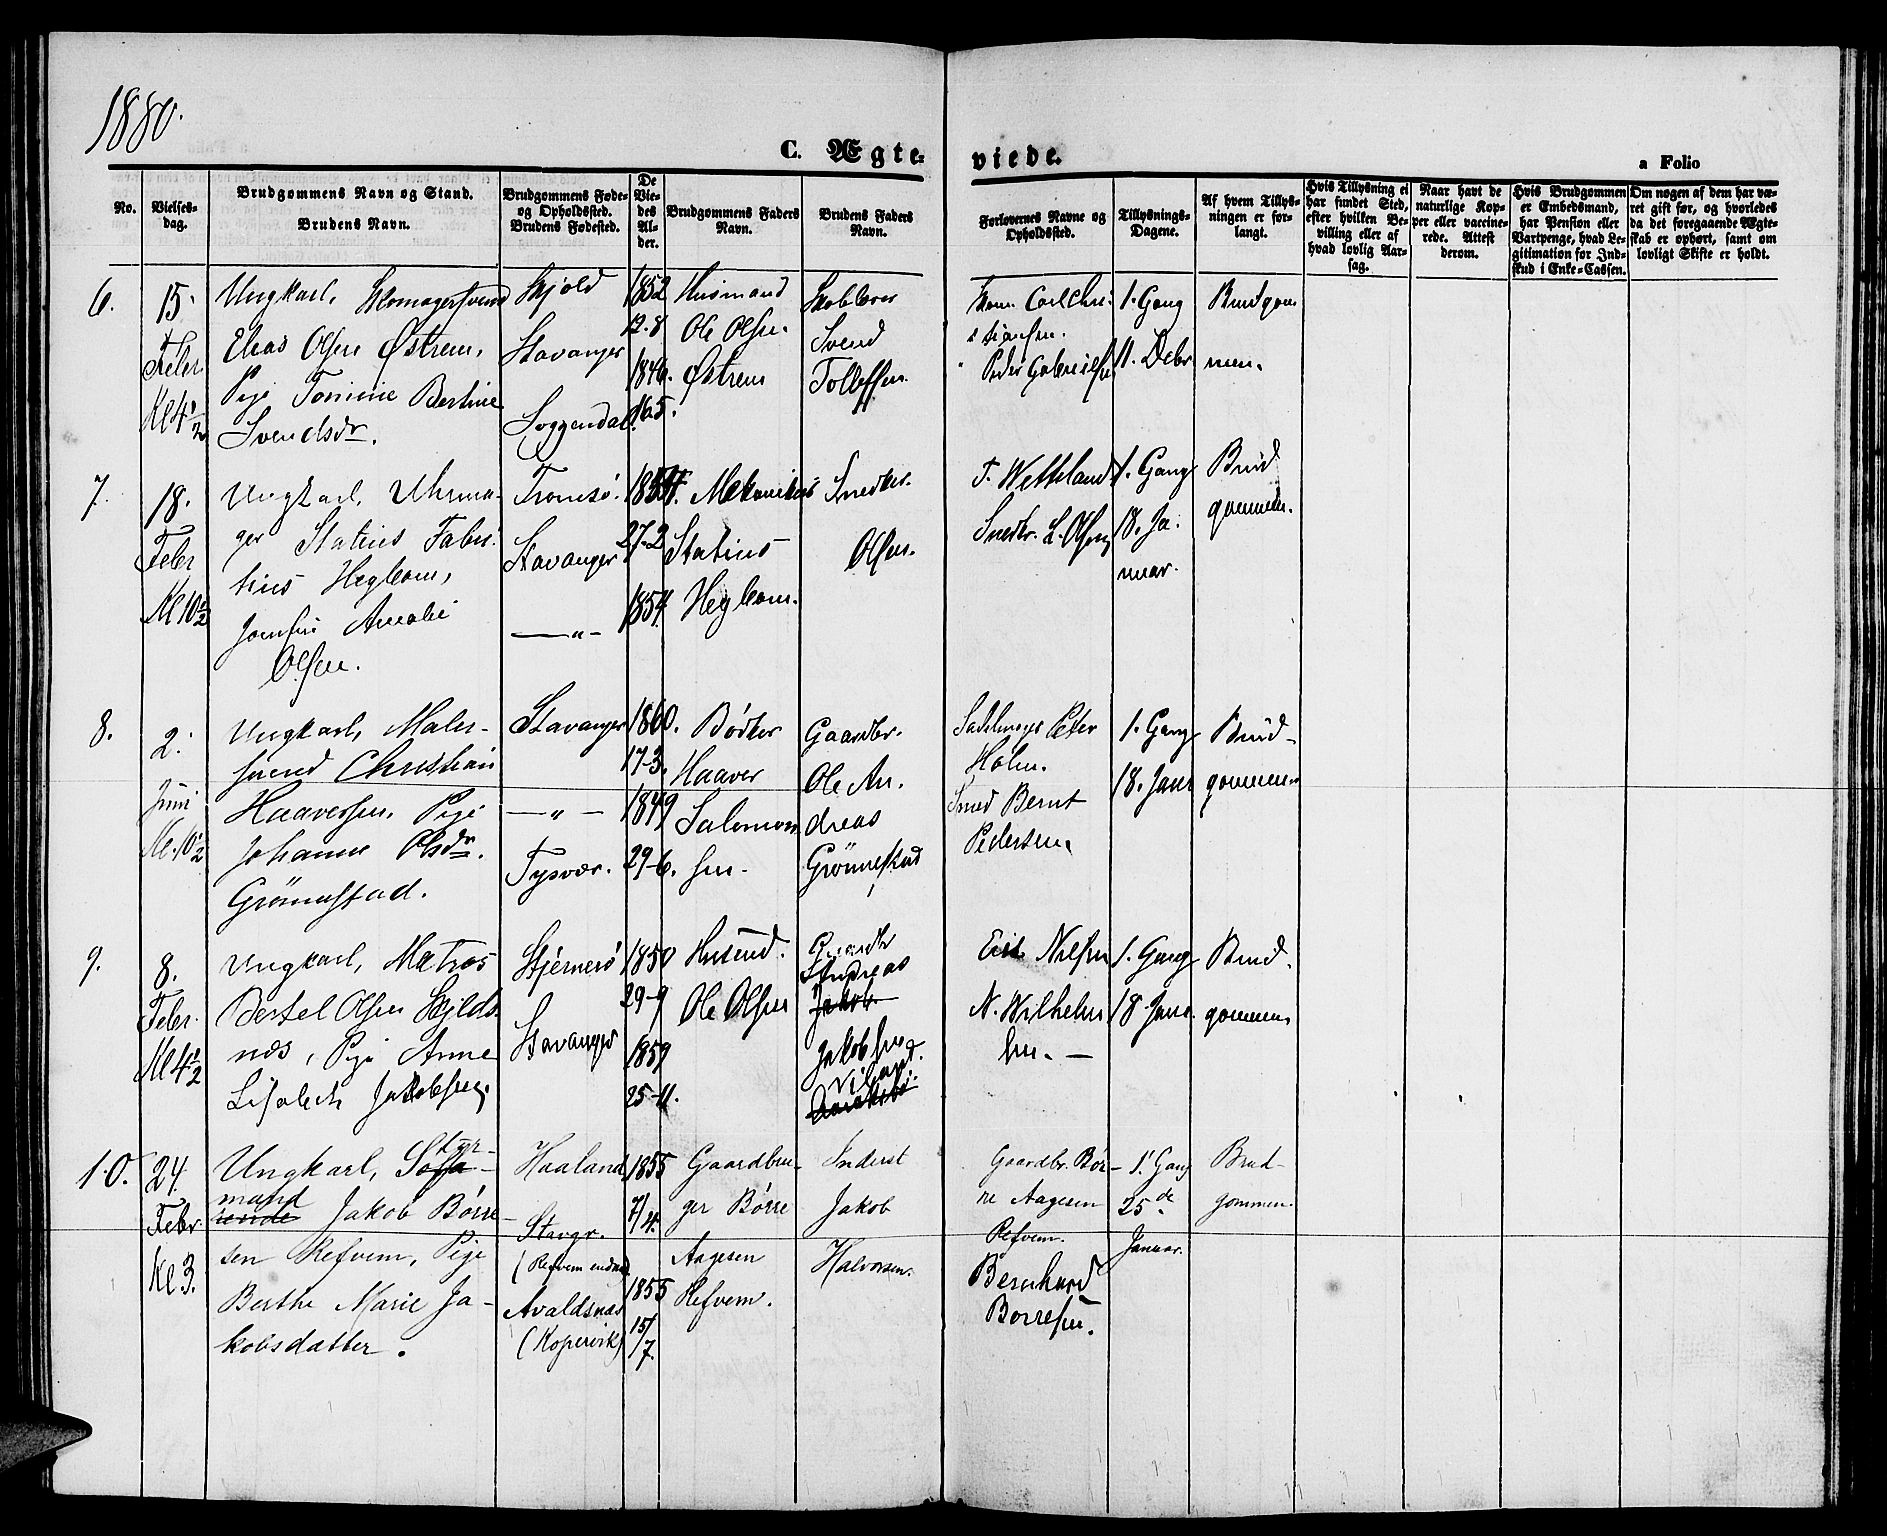 1880.
C. Ægte-
viede.
a Folio
No.
Vielses-
dag.
Brudgommens Navn og Stand.
Brudens Navn.
Brudgommens Føde-
og Opholdssted.
Brudens Fødested.
De
Vie-
des
Al-
der.
Brudgommens Faders
Navn.
Brudens Faders
Navn.
Forlovernes Navne og
Opholdssted.
Tillysnings-
Dagene.
Af hvem Tillys-
ningen er for-
langt.
Hvis Tillysning ei
har fundet Sted,
efter hvilken Be-
villing eller af
hvad lovlig Aar-
sag.
Naar havt de
naturlige Kop-
per eller vaccine-
rede. Attest
derom.
Hvis Brudgommen
er Embedsmand,
har Pension eller
Vartpenge, hvad Le-
gitimation for Ind-
skud i Enke-Cassen.
Om nogen af dem har væ-
ret gift før, og hvorledes
da det foregaaende Ægte-
skab er ophørt, samt om
lovligt Skifte er holdt.
6.
15.
Febr.
Kl 4 1/2
Ungkarl,
Elias Olsen Østrem,
Pige Tomine Bertine
Svendsdr.
Skjold
Stavanger
Soggendal.
1852
12-8
1846.
16.5.
Husmand
Ole Olsen
Østrem
Svend
Tollefsen.
Carl Chri-
stiansen.
Peder Gabrielsen
1. Gang
11. Debr
Brudgom
men.
7.
18.
Febr
Kl 10 1/2
Ungkarl, Uhrma-
ger Statius Fabri-
tius Hegbom,
Jomfru Amalie
Olsen.
Tromsø.
Stavanger
— " —
27-2
1854.
Mekanikus
Statius
Hegbom.
Snedker
Olsen.
T. Wetteland
Snedkr. L. Olsen
1. Gang
18. Ja-
nuar.
Brud
gommen.
8.
2.
Juni
Kl. 10 1/2
Ungkarl, Maler-
svend Christian
Haaversen. Pige
Johanne Olsdr.
Grönnestad.
Stavanger
— " —
Tysvær.
1860.
17-3.
1849
29-6.
Bødker
Haaver
Salomon
sen.
Gaardbr.
Ole An-
dreas
Grönnestad
Peter
Holm.
Smed Bernt
Pedersen.
1. Gang
18. Janr
Brud-
gommen
9.
8.
Febr.
Kl 4 1/2
Ungkarl, Matros
Bertel Olsen Skjilds-
næs, Pige Anne
Lisabeth Jakobsen.
Stjernerø
Stavanger
1850
29-9
1859
25-11.
Husmd.
Ole Olsen
Gaardbr
Andreas
Jakob
Jakobsen
N. Wilhelm
sen. —
1. Gang
18 Janr.
Brud-
gommen
10.
24.
Febr
Kl 3.
Ungkarl, Styr-
mand Jakob Børre-
sen Refvem, Pige
Berthe Marie Ja-
kobsdatter.
Haaland
Stavgr.
(Refvem endnu)
Avaldsnæs
(Kopervik)
1855
7/4.
1855
15/7.
Gaardbru-
ger Børre
Aagesen
Refvem.
Inderst
Jakob
Halvorsen.
Gaardbr. Bør-
re Aagesen
Refvem.
Bernhard
Borresen.
1. Gang
25de
Januar.
Brud-
gommen.